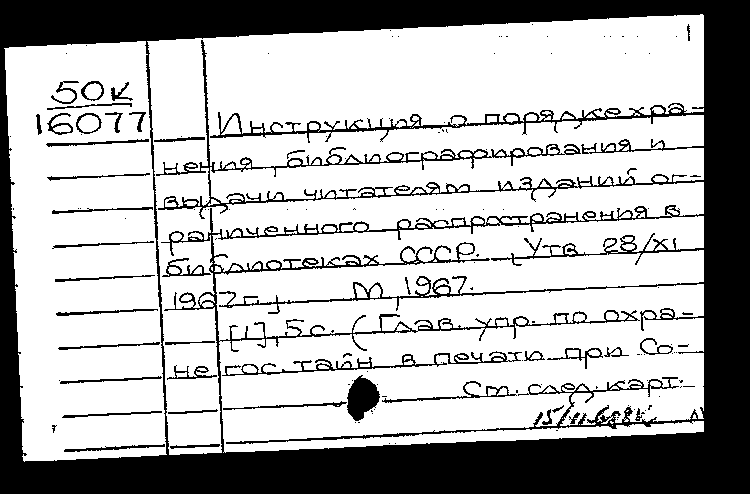 1
50к
16077
Инструкция о порядке хра=
нения, библиографирования и
выдачи читателям изданий ог-
раниченного распространения в
библиотеках СССР. [Утв 28/XI
1967г.]. М., 1967.
[1], 5 с. (Глав. упр. по охра=
не гос. тайн в печати при Со-
См. след. карт.